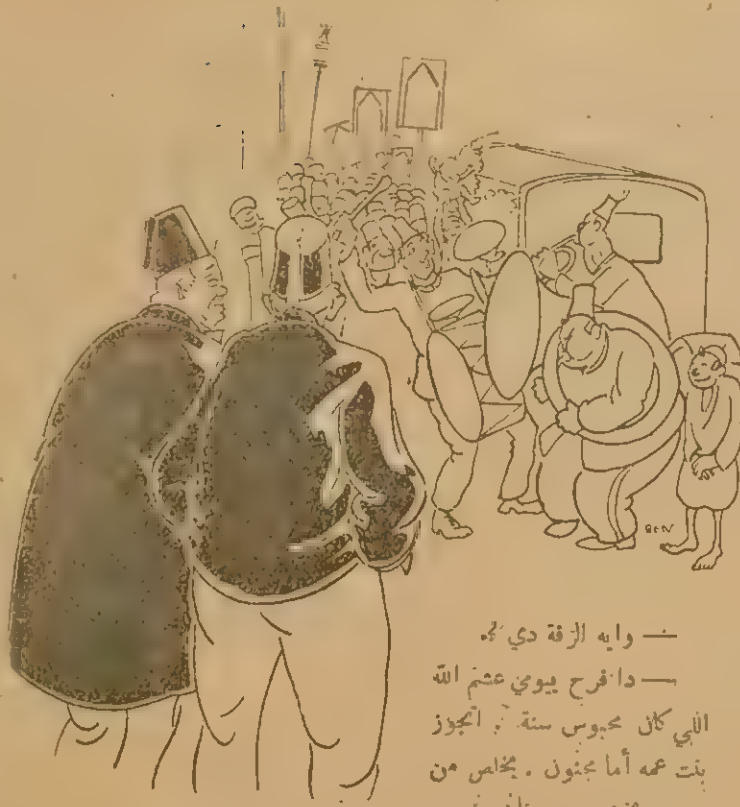 — وايه الزفة دي ؟.
— دا فرح بيومي عشم الله
اللي كان محبوس سنة . اتجوز
بنت عمه أما مجنون . يخلص من